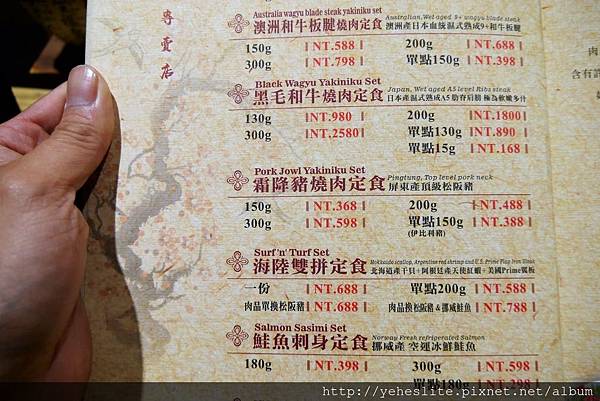 專賣店
Australia wagyu blade steak yakiniku set
Australian, Wet aged 9+ wagyu blade steak
澳洲和牛板腱燒肉定食 澳洲產日本血統濕式熟成9+和牛板腱
150g NT.588 200g NT.688
300g NT.798 單點150g NT.398
Black Wagyu Yakiniku Set
Japan, Wet aged A5 level Ribs steak
黑毛和牛燒肉定食 日本產濕式熟成A5肋脊肩胸 極為軟嫩多汁
130g NT.980 200g NT.1800
300g NT.2580 單點130g NT.890
單點15g NT.168
Pork Jowl Yakiniku Set
Pingtung, Top level pork neck
霜降豬燒肉定食 屏東產頂級松阪豬
150g NT.368 200g NT.488
300g NT.598 單點150g NT.388
(伊比利豬)
Surf 'n' Turf Set
Hokkaido scallop, Argentine red shrimp and U.S. Prime Flag Iron Steak
海陸雙拼定食 北海道產干貝+阿根廷產天使紅蝦+美國Prime嫩板
一份 NT.688 單點200g NT.588
肉品單換松阪豬 NT.688 肉品換松阪豬&挪威鮭魚 NT.788
Salmon Sasimi Set
Norway Fresh refrigerated Salmon
鮭魚刺身定食 挪威產 空運冰鮮鮭魚
180g NT.398 300g NT.598
單點180g NT.298
肉
含有
http://yeheslite.pixnet.net/album